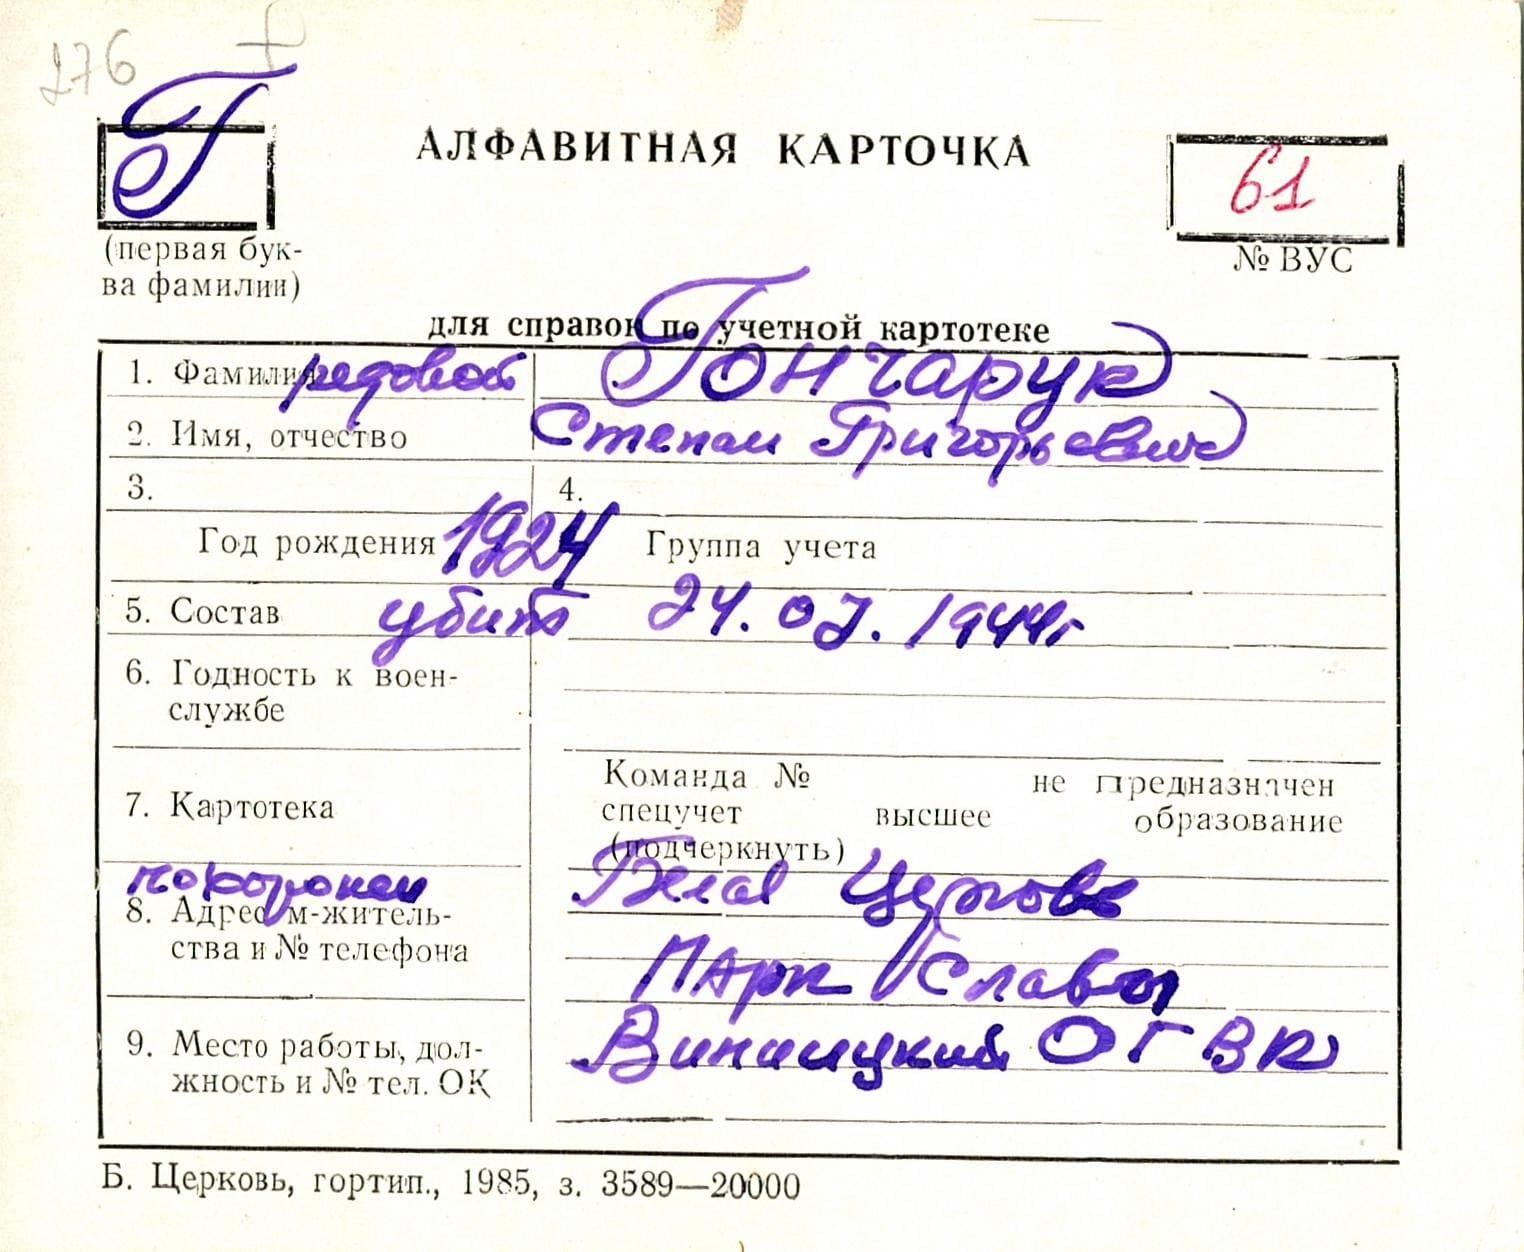 276
Г
АЛФАВИТНАЯ КАРТОЧКА
61
(первая бук-
ва фамилии)
№ ВУС
для справок по учетной картотеке
1. Фамилия рядовой Гончарук
2. Имя, отчество Степан Григорьевич
3. 4.
Год рождения 1924 Группа учета
5. Состав убит 24.07.1944г
6. Годность к воен-
службе
Команда № не предназначен
7. Картотека спецучет высшее образование
(подчеркнуть)
похоронен Белая Церковь
8. Адрес м-житель-
ства и № телефона
Парк Славы
9. Место работы, дол-
жность и № тел. ОК
Винницкий ОГВК
Б. Церковь, гортип., 1985, з. 3589—20000